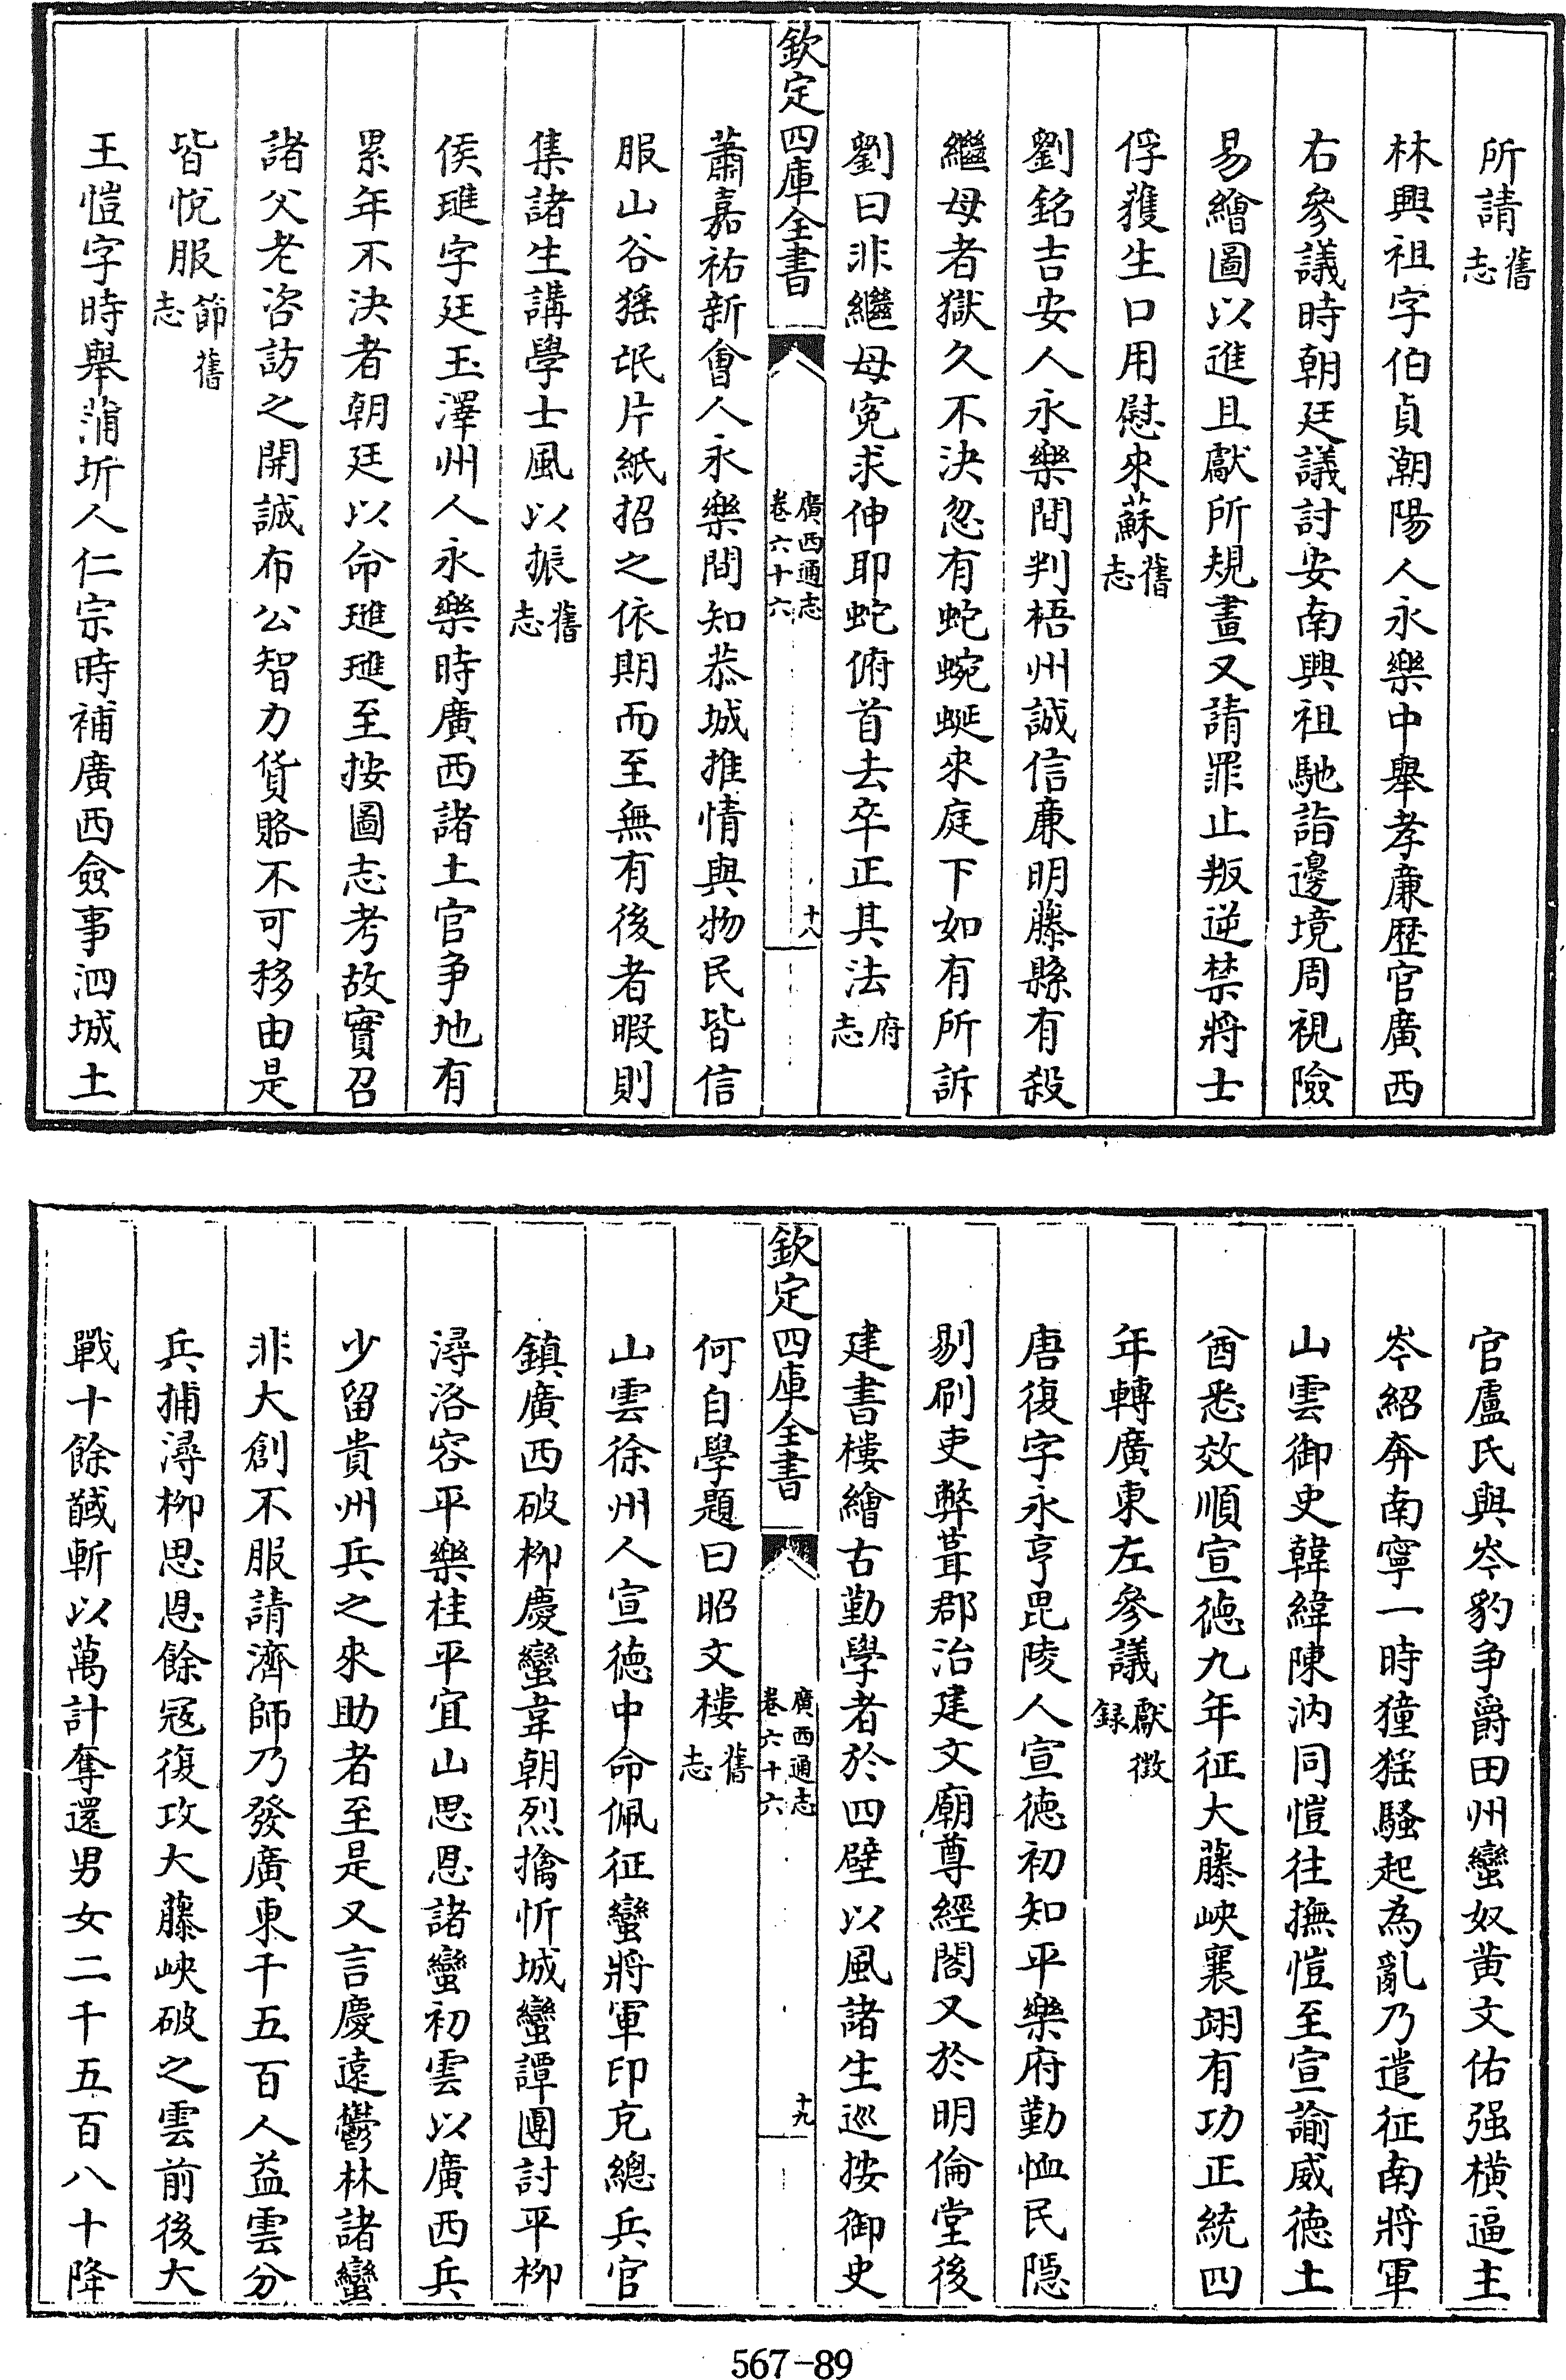 所請舊志
林興祖字伯貞潮陽人永樂中舉孝廉歷官廣西
右參議時朝廷議討安南興祖馳詣邊境周視險
易繪圖以進且獻所規畫又請罪止叛逆禁將士
俘獲生口用慰來蘇舊志
劉銘吉安人永樂間判梧州誠信廉明藤縣有殺
繼母者獄久不決忽有蛇蜿蜒來庭下如有所訴
劉曰非繼母寃求伸耶蛇俯首去卒正其法府志
欽定四庫全書
廣西通志
卷六十六
十八
蕭嘉祐新會人永樂間知恭城推情與物民皆信
服山谷猺氓片紙招之依期而至無有後者暇則
集諸生講學士風以振舊志
侯璡字廷玉澤州人永樂時廣西諸土官争地有
累年不決者朝廷以命璡璡至按圖志考故實召
諸父老咨訪之開誠布公智力貨賂不可移由是
皆悅服節舊志
王愷字時舉蒲圻人仁宗時補廣西僉事泗城土
官盧氏與岑豹争爵田州蠻奴黄文佑强横逼主
岑紹奔南寧一時獞猺騷起為亂乃遣征南將軍
山雲御史韓緯陳汭同愷往撫愷至宣諭威徳土
酋悉效順宣徳九年征大藤峽襄翊有功正統四
年轉廣東左參議獻徵録
唐復字永亨毘陵人宣徳初知平樂府勤恤民隠
剔刷吏弊葺郡治建文廟尊經閣又於明倫堂後
建書樓繪古勤學者於四壁以風諸生巡按御史
欽定四庫全書
廣西通志
卷六十六
十九
何自學題曰昭文樓舊志
山雲徐州人宣徳中命佩征蠻將軍印充總兵官
鎮廣西破柳慶蠻韋朝烈擒忻城蠻譚團討平柳
潯洛容平樂桂平宜山思恩諸蠻初雲以廣西兵
少留貴州兵之來助者至是又言慶遠鬱林諸蠻
非大創不服請濟師乃發廣東千五百人益雲分
兵捕潯柳思恩餘冦復攻大藤峽破之雲前後大
戰十餘馘斬以萬計奪還男女二千五百八十降
567-89